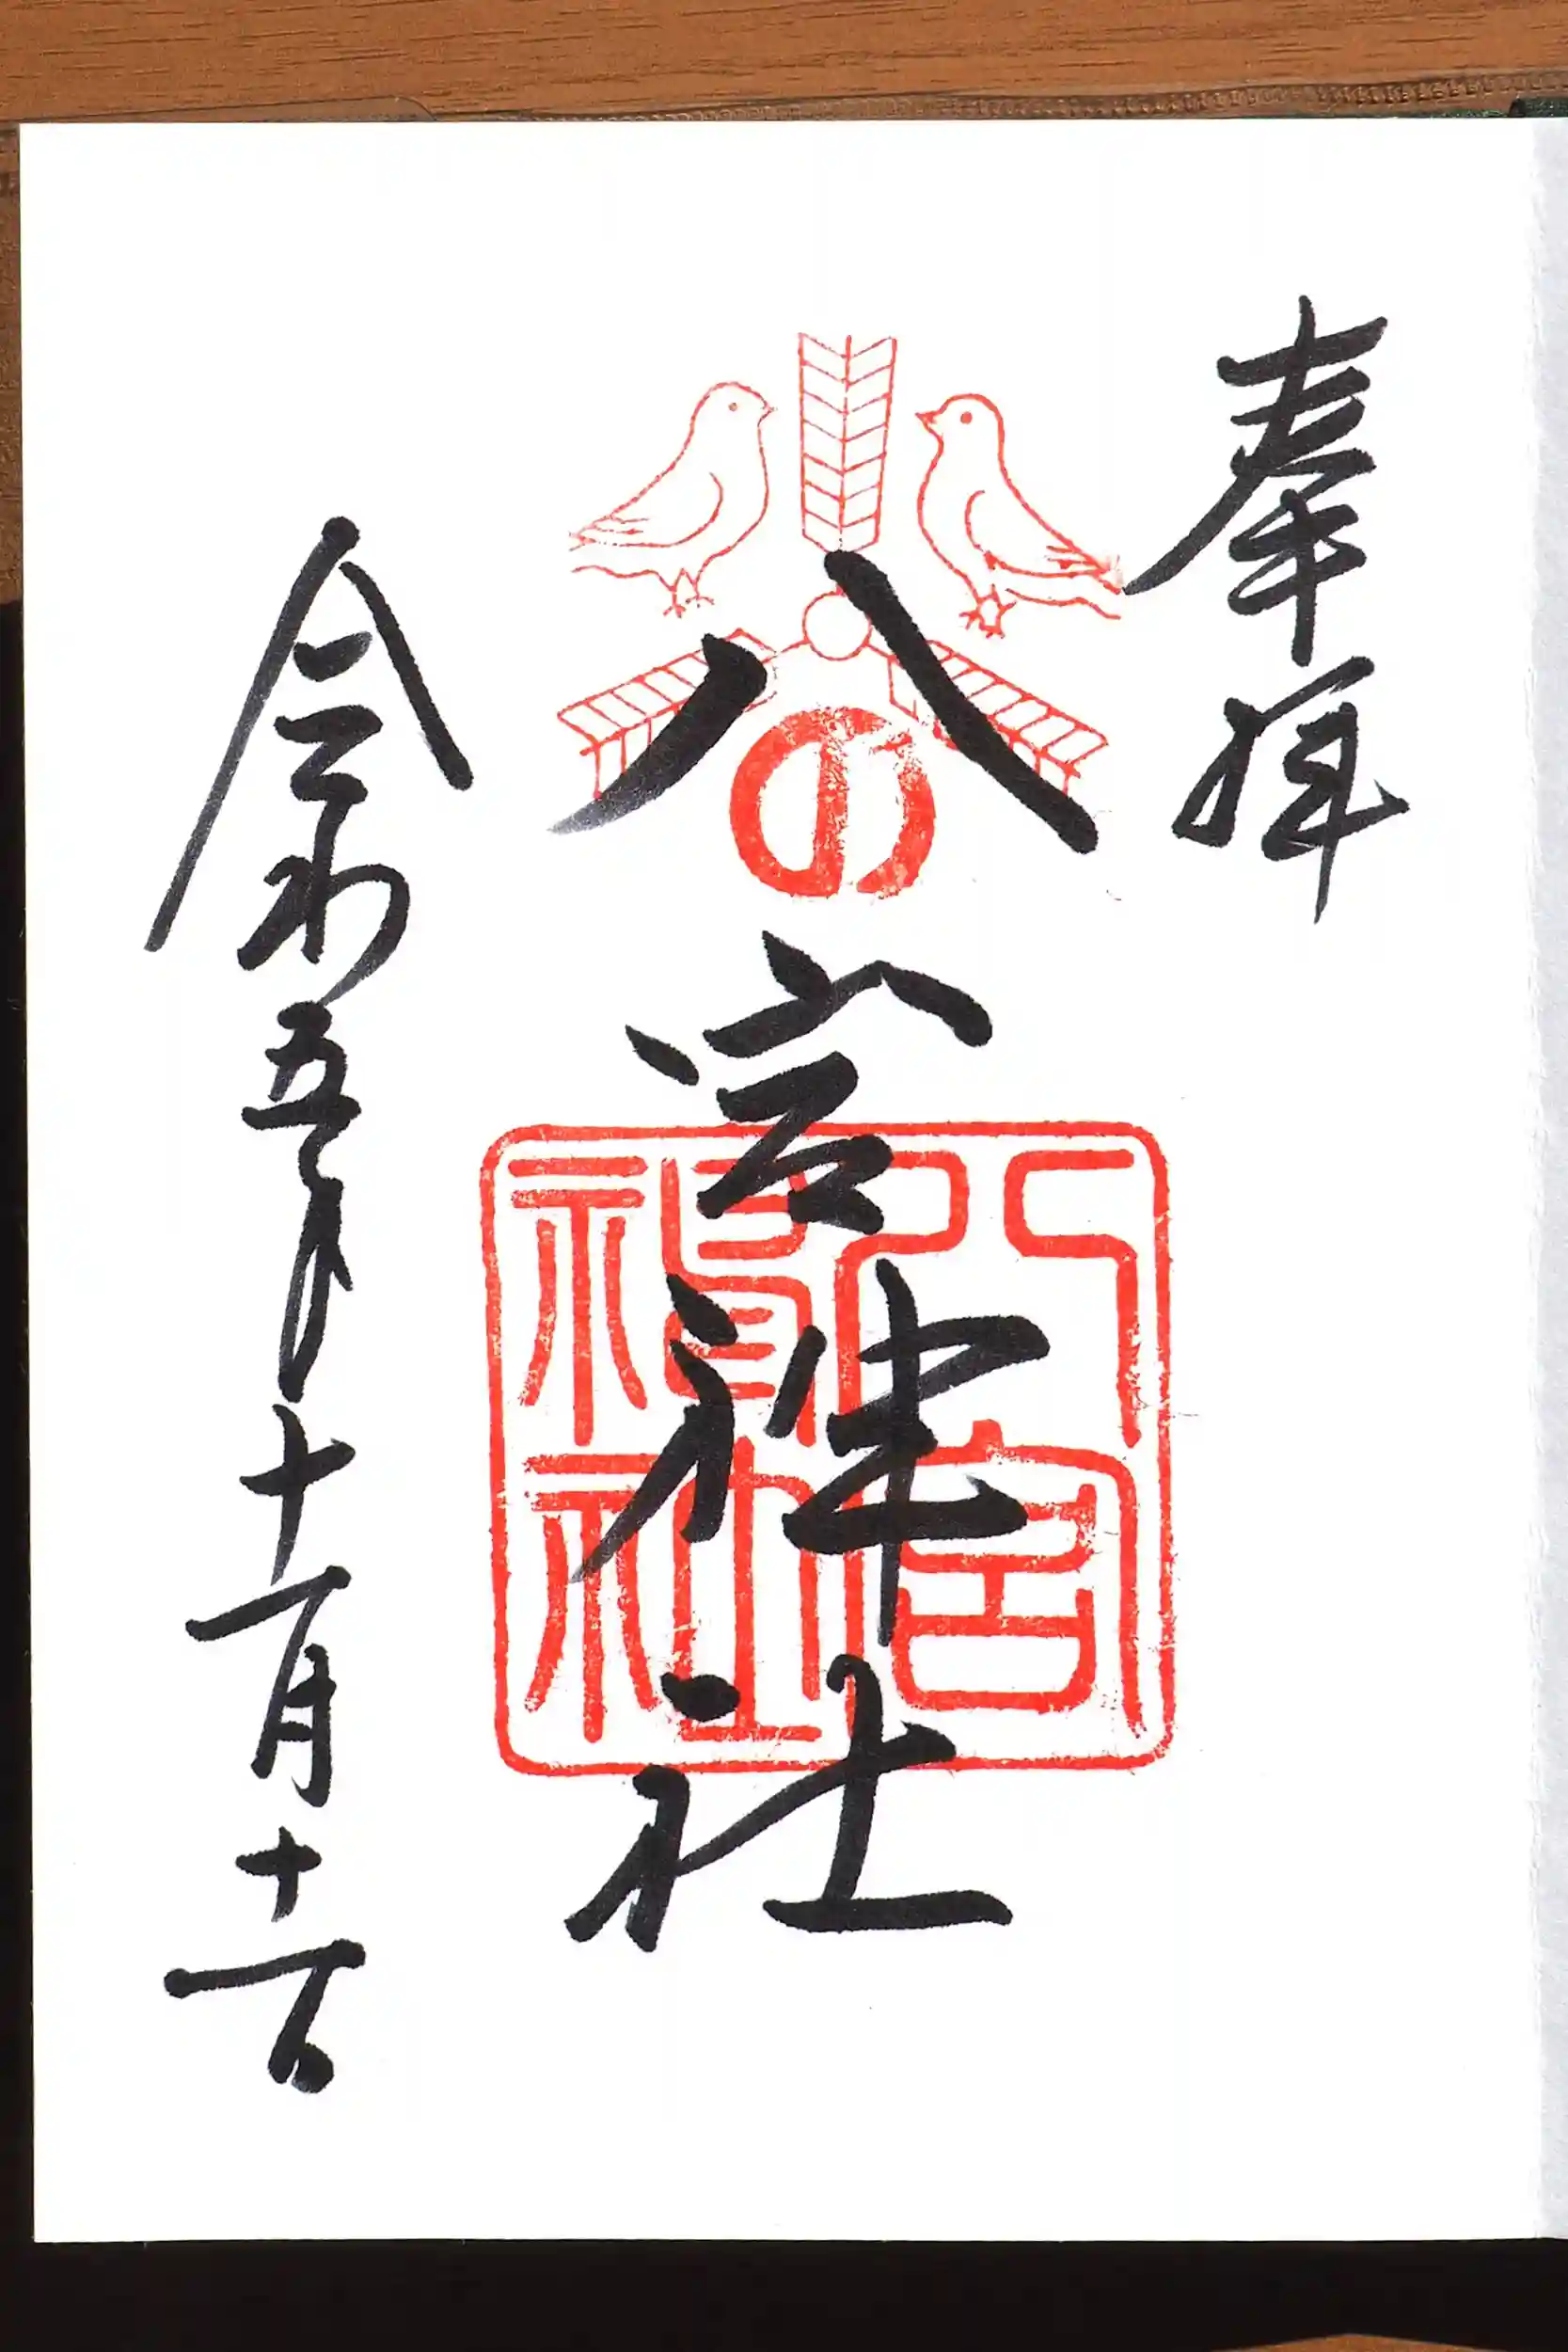 奉拝
の
八宮神社
八宮
神社
令和五年十一月十一日